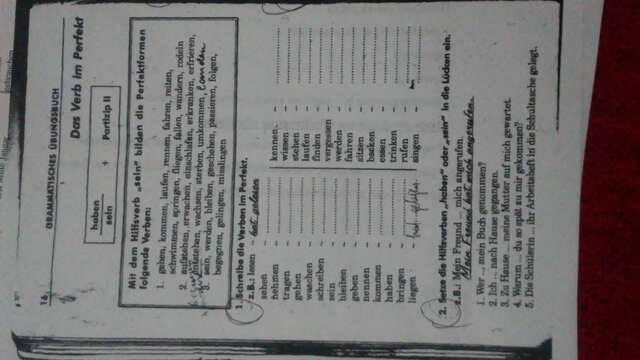 16
GRAMMATISCHES ÜBUNGSBUCH
Das Verb im Perfekt
haben
sein
+ Partizip II
Mit dem Hilfsverb „sein" bilden die Perfektformen
folgende Verben:
1. gehen, kommen, laufen, rennen, fahren, reiten,
schwimmen, springen, fliegen, fallen, wandern, rodeln
2. aufstehen, erwachen, einschlafen, erkranken, erfrieren,
entstehen, wachsen, sterben, umkommen, landen
3. sein, werden, bleiben, geschehen, passieren, folgen,
begegnen, gelingen, misslingen
1. Schreibe die Verben im Perfekt.
z.B.: lesen – hat gelesen
sehen –
nehmen –
tragen –
gehen –
waschen –
schreiben –
sein –
bleiben –
geben –
nennen –
kommen –
haben –
bringen –
liegen –
kennen –
wissen –
stehen –
laufen –
finden –
vergessen –
werden –
fahren –
sitzen –
backen –
essen –
trinken –
rufen –
singen –
2. Setze die Hilfsverben „haben" oder „sein" in die Lücken ein.
z.B.: Mein Freund ... mich angerufen.
Mein Freund hat mich angerufen.
1. Wer ... mein Buch genommen?
2. Ich ... nach Hause gegangen.
3. Zu Hause ... meine Mutter auf mich gewartet.
4. Warum ... du so spät zu mir gekommen?
5. Die Schülerin ... ihr Arbeitsheft in die Schultasche gelegt.